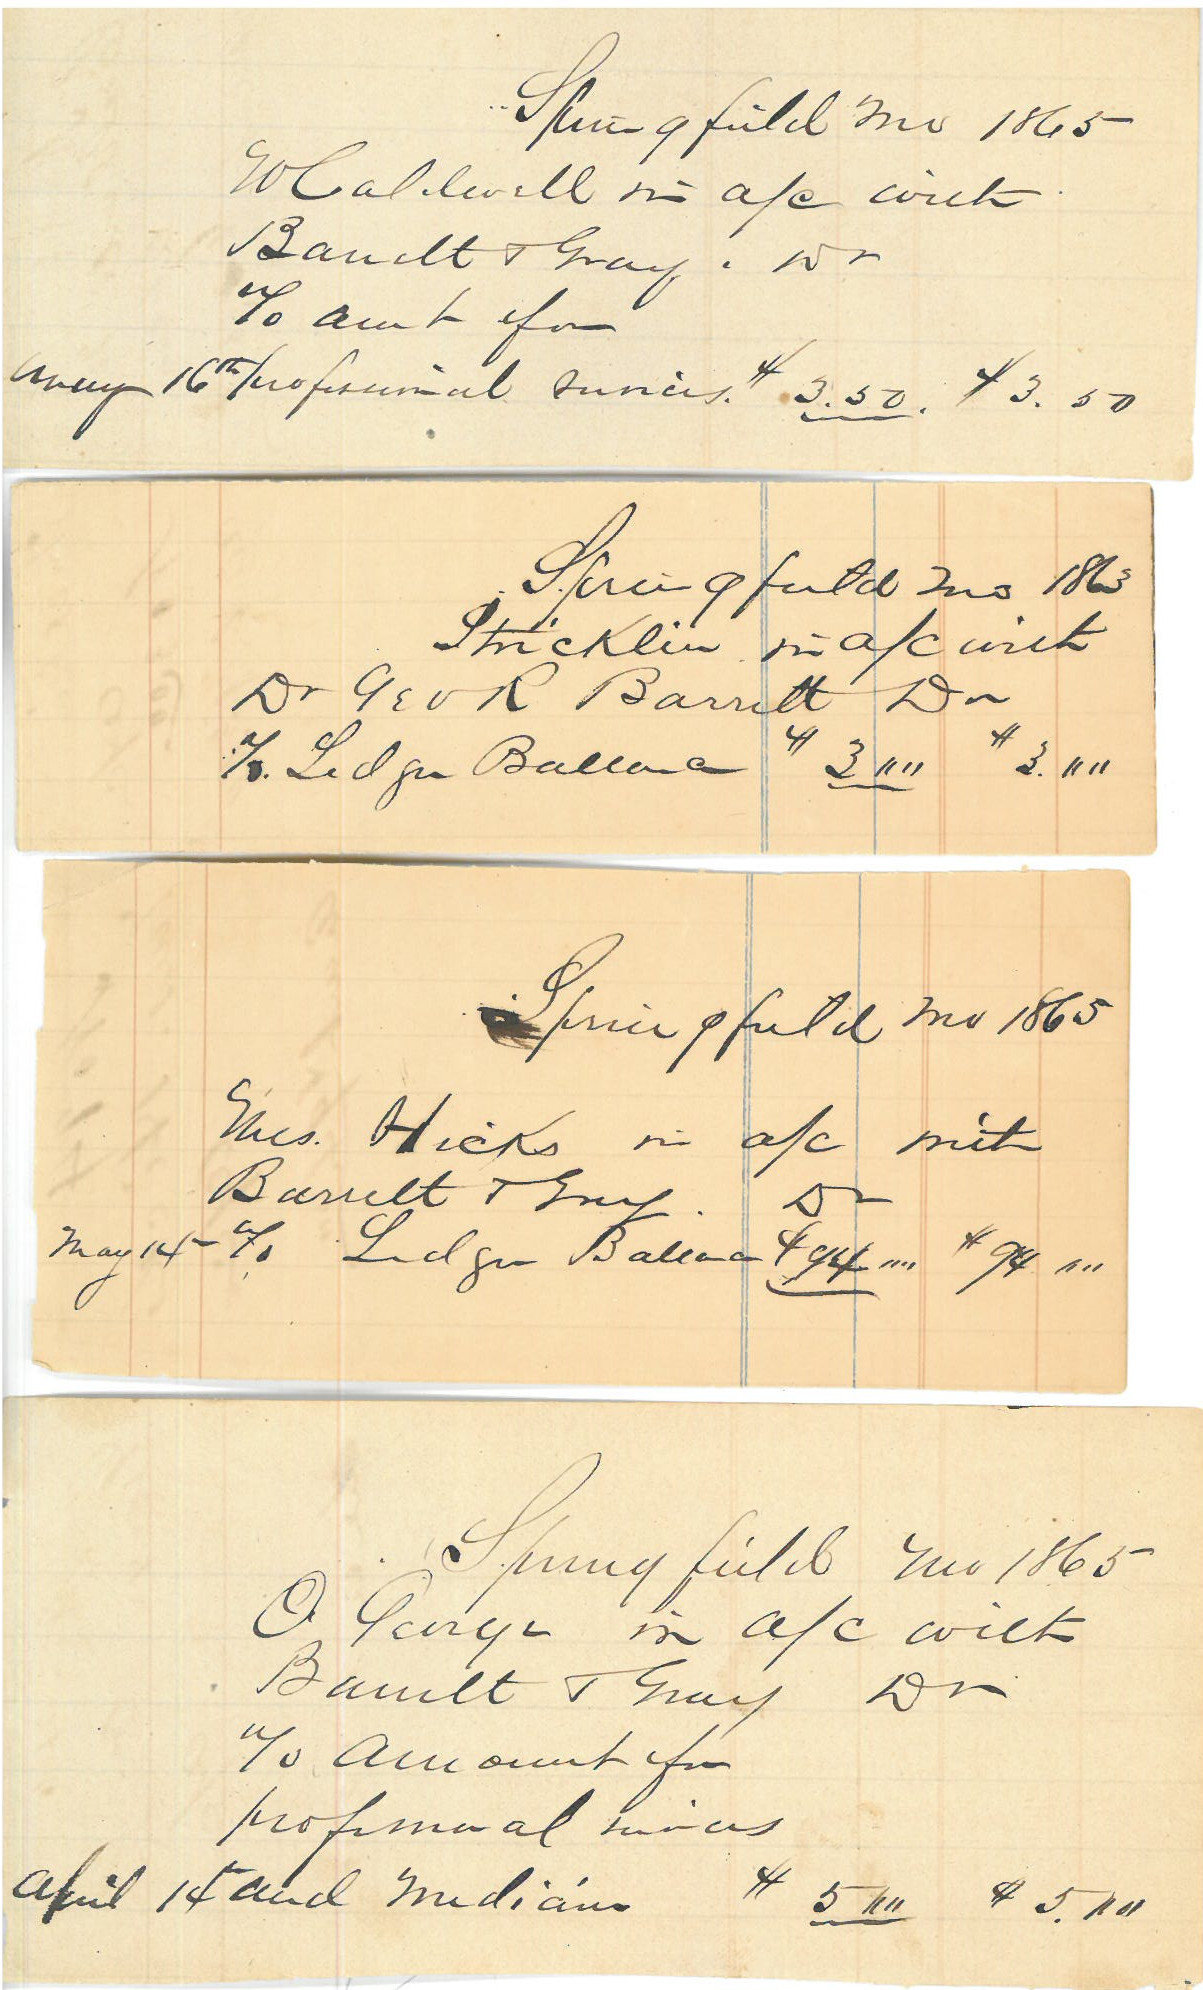 Springfield Mo 1865
W Caldwell in a/c with
Barrett & Gray. Dr
To amt for
May 16th professional services. $3.50. $3.50
Springfield Mo 1863
Stricklin in a/c with
Dr Geo R Barrett Dr
To Ledger Ballance $3 "" $3. ""
Springfield Mo 1865
Mrs. Hicks in a/c with
Barrett & Gray. Dr
May 14 To Ledger Ballance $94 "" $94 ""
Springfield Mo 1865
O George in a/c with
Barrett & Gray Dr
To Amount for
professional services
April 14 and Medicine $5 "" $5. ""